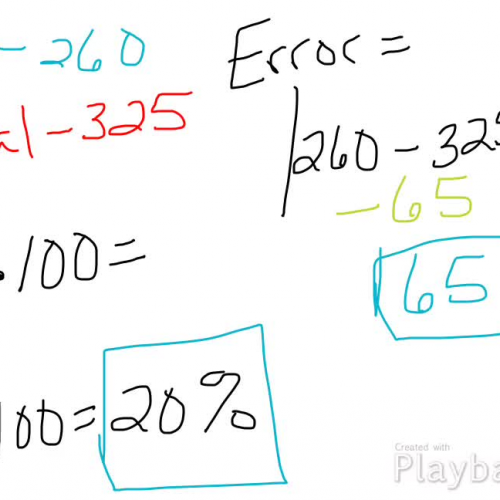 - 260
al - 325
Error =
|260 - 325
- 65
65
• 100 =
100 = 20%
Created with